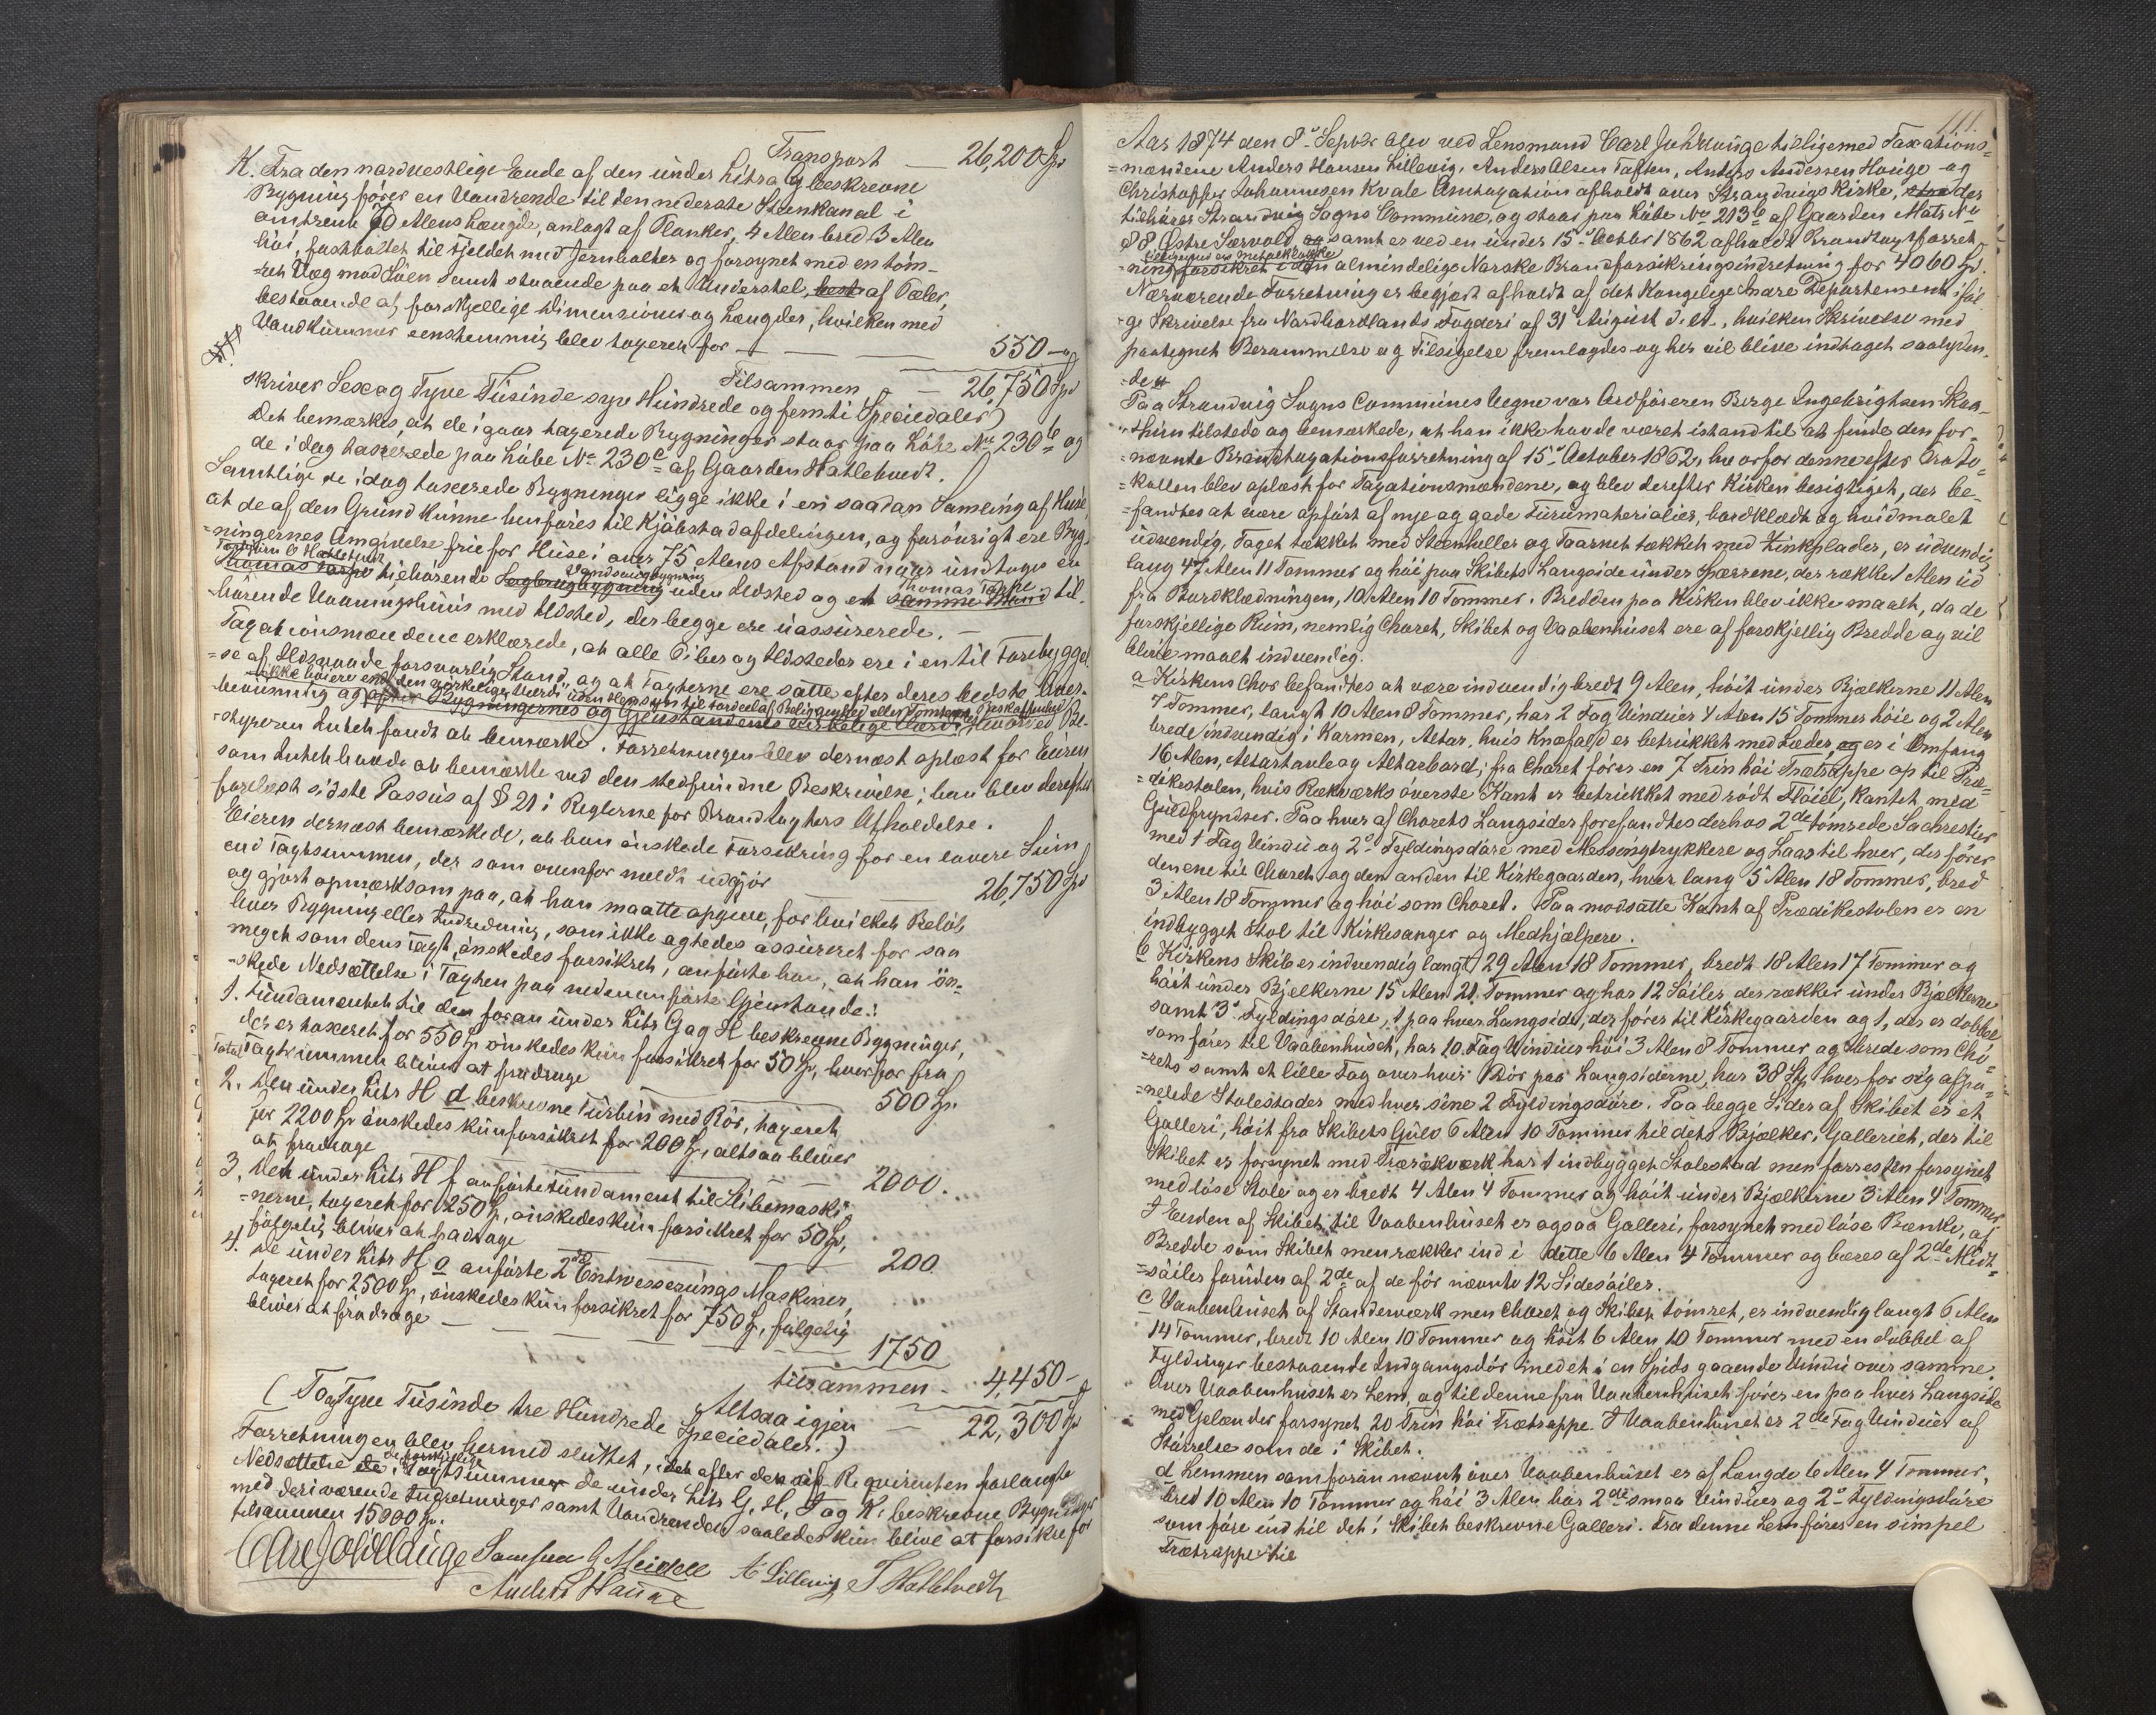 Transport — 26,200 Spd
K. Fra den nordvestlige Ende af den under Litra G beskrevne
Bygning fører en Vandrende til den nederste Steenkanal i
omtrent 70 Alens Længde, anlagt af Planker, 4 Alen bred 3 Alen
høi, fastboltet til Fjeldet med Jernbolter og forsynet med en töm-
ret Væg mod Söen samt staaende paa et Understel, best af Pæler,
bestaaende af forskjellige Dimensioner og Længder, hvilken med
Vandkummer eenstemmig blev taxeret for — 550 —
Tilsammen — 26,750 Spd
skriver Sex og Tyve Tusinde syv Hundrede og femti Speciedaler)
Det bemærkes, at de igaar taxerede Bygninger staar paa Löbe No 230b og
de idag taxerede paa Löbe No 230c af Gaarden Hatlebvedt.
Samtlige de idag taxerede Bygninger ligge ikke i en saadan Samling af Huse,
at de af den Grund kunne henføres til Kjöbstadafdelingen, og forövrigt ere Byg-
ningernes Omgivelse frie for Huse i over 75 Alens Afstand naar undtages en
Torbjörn O Hatlebvedt Vandsaugbygning Thomas Tarpe
Thomas Tarpe tilhörende Saugbrugbygning uden Ildsted og et samme Mand til-
hörende Vaaningshuus med Ildsted, der begge ere uassurerede. —
Taxationsmændene erklærede, at alle Piber og Ildsteder ere i en til Forebyggel-
se af Ildsvaade forsvarlig Stand, og at Taxterne ere satte efter deres bedste Over-
ikke höiere end den virkelige Værdi uden Hensyn til Fordeel af Beliggenhed eller Tomtens Beskaffenhed
beviisning og efter Bygningernes og Gjenstandenes virkelige Værdi, hvorved Be-
styreren Intet fandt at bemærke. Forretningen blev dernæst oplæst for Eieren
som Intet havde at bemærke ved den stedfundne Beskrivelse; han blev derefter
forelæst sidste Passus af § 21 i Reglerne for Brandtaxters Afholdelse.
Eieren dernæst bemærkede, at han önskede Forsikring for en lavere Sum
end Taxtsummen, der som ovenfor meldt udgjör — 26,750 Spd
og gjort opmærksom paa, at han maatte opgive, for hvilket Belöb
hver Bygning eller Indredning, som ikke agtedes assureret for saa
meget som dens Taxt, önskedes forsikret, anførte han, at han ön-
skede Nedsættelse i Taxten paa nedenanførte Gjenstande:
1. Fundamentet til den foran under Litr G og H beskrevne Bygninger,
der er taxeret for 550 Sp önskedes kun forsikret for 50 Sp, hvorfor fra
Total Taxtsummen bliver at fradrage — 500 Sp.
2. Den under Litr H d beskrevne Turbin med Rör, taxeret
for 2200 Sp önskedes kun forsikret for 200 Sp, altsaa bliver
at fradrage — 2000.
3. Det under Litr H f anførte Fundament til Slibemaski-
nerne, taxeret for 250 Sp, önskedes kun forsikret for 50 Sp,
fölgelig bliver at fradrage — 200.
4. De under Litr H o anførte 2de Entwesserungs Maskiner,
taxeret for 2500 Sp, önskedes kun forsikret for 750 Sp, fölgelig
bliver at fradrage — 1750
tilsammen — 4,450 —
Altsaa igjen — 22,300 Sp
( To og Tyve Tusinde tre Hundrede Speciedaler.)
Forretningen blev hermed sluttet, idet efter den af Requirenten forlangte
de forskjellige
Nedsættelse de i Taxtsummer de under Litr G. H, I og K. beskrevne Bygninger
med deriværende Indretninger samt Vandrenden saaledes kun blive at forsikre for
tilsammen 15000 Sp.
Carl Joh Vinge Samson G Meidell A Lillevig T Hatlebvedt
Anders Hauge
111.
Aar 1874 den 8de Septbr blev ved Lensmand Carl Joh Vinge tilligemed Taxations-
mændene Anders Hansen Lillevig, Anders Olsen Toften, Anders Andersen Hauge og
Christoffer Johannesen Kvale Omtaxation afholdt over Strandvigs Kirke, staa der
tilhörer Strandvig Sogns Commune, og staar paa Löbe No 213b af Gaarden Matr No
88 Östre Særvold, og samt er ved en under 15de Octbr 1862 afholdt Brandtaxtforret-
tilligemed en Metalklokke
ning forsikret i den almindelige Norske Brandforsikringsindretning for 4060 Sp.
Nærværende Forretning er begjært afholdt af det Kongelige Indre Departement ifølge
ge Skrivelse fra Nordhordlands Fogderi af 31 August d. A., hvilken Skrivelse med
paategnet Berammelse og Tilsigelse fremlagdes og her vil blive indtaget saalyden-
de
Paa Strandvig Sogns Communes Vegne var Ordföreren Berge Ingebrigtsen Skaa-
thun tilstede og bemærkede, at han ikke havde været istand til at finde den for-
nævnte Brandtaxationsforretning af 15de October 1862, hvorfor denne efter Proto-
kollen blev oplæst for Taxationsmændene, og blev derefter Kirken besigtiget, der be-
fandtes at være opført af nye og gode Furumaterialier, bordklædt og hvidmalet
udvendig, Taget tækket med Steenheller og Taarnet tækket med Zinkplader, er udvendig
lang 47 Alen 11 Tommer og höi paa Skibets Langside under Spærrene, der rækker 1 Alen ud
fra Bordklædningen, 10 Alen 10 Tommer. Bredden paa Kirken blev ikke maalt, da de
forskjellige Rum, nemlig Choret, Skibet og Vaabenhuset ere af forskjellig Bredde og vil
blive maalt indvendig.
a Kirkens Chor befandtes at være indvendig bredt 9 Alen, höit under Bjælkerne 11 Alen
7 Tommer, langt 10 Alen 8 Tommer, har 2 Fag Vinduer 4 Alen 15 Tommer höie og 2 Alen
brede indvendig i Karmen, Altar, hvis Knæfald er betrukket med Læder, og er i Omfang
16 Alen, Altartavle og Altarbord; fra Choret fører en 7 Trin höi Trætrappe op til Præ-
dikestolen, hvis Rækværks överste Kant er betrukket med rödt Flöiel, kantet med
Guldfryndser. Paa hver af Chorets Langsider forefandtes derhos 2de tömrede Sachrestier
med 1 Fag Vindu og 2de Fyldingsdöre med Messingtrykkere og Laas til hver, der förer
den ene til Choret og den anden til Kirkegaarden, hver lang 5 Alen 18 Tommer, bred
3 Alen 18 Tommer og höi som Choret. Paa modsatte Kant af Prædikestolen er en
indbygget Stol til Kirkesanger og Medhjælpere.
b Kirkens Skib er indvendig langt 29 Alen 18 Tommer, bredt 18 Alen 17 Tommer og
höit under Bjælkerne 15 Alen 21 Tommer og har 12 Söiler der rækker under Bjælkerne
samt 3de Fyldingsdöre, 1 paa hver Langside, der fører til Kirkegaarden og 1, der er dobbel
som fører til Vaabenhuset, har 10 Fag Vinduer höi 3 Alen 8 Tommer og brede som Cho-
rets samt et lille Fag over hver Dör paa Langsiderne, har 38 Stk hver for sig afpa-
nelede Stolestader med hver sine 2 Fyldingsdöre. Paa begge Sider af Skibet er et
Galleri, höit fra Skibets Gulv 6 Alen 10 Tommer til dets Bjælker; Galleriet, der til
Skibet er forsynet med Trærækværk har 1 indbygget Stolestad men forresten forsynet
med löse Stole og er bredt 4 Alen 4 Tommer og höit under Bjælkerne 3 Alen 4 Tommer
I Enden af Skibet til Vaabenhuset er ogsaa Galleri, forsynet med löse Bænke, af
Bredde som Skibet men rækker ind i dette 6 Alen 4 Tommer og bæres af 2de Midt-
söiler foruden af 2de af de för nævnte 12 Sidesöiler.
c Vaabenhuset af Standerværk men Choret og Skibet tömret, er indvendig langt 6 Alen
14 Tommer, bredt 10 Alen 10 Tommer og höit 6 Alen 10 Tommer med en dobbel af
Fyldinger bestaaende Indgangsdör med et i en Spids gaaende Vindu over samme.
Over Vaabenhuset er Lem, og til denne fra Vaabenhuset fører en paa hver Langside
med Gelænder forsynet 20 Trin höi Trætrappe. I Vaabenhuset er 2de Fag Vinduer af
Störrelse som de i Skibet.
d Lemmen som foran nævnt over Vaabenhuset er af Længde 6 Alen 4 Tommer,
bred 10 Alen 10 Tommer og höi 3 Alen har 2de smaa Vinduer og 2de Fyldingsdöre
som före ind til det i Skibet beskrevne Galleri. Fra denne Lem fører en simpel
Trætrappe til